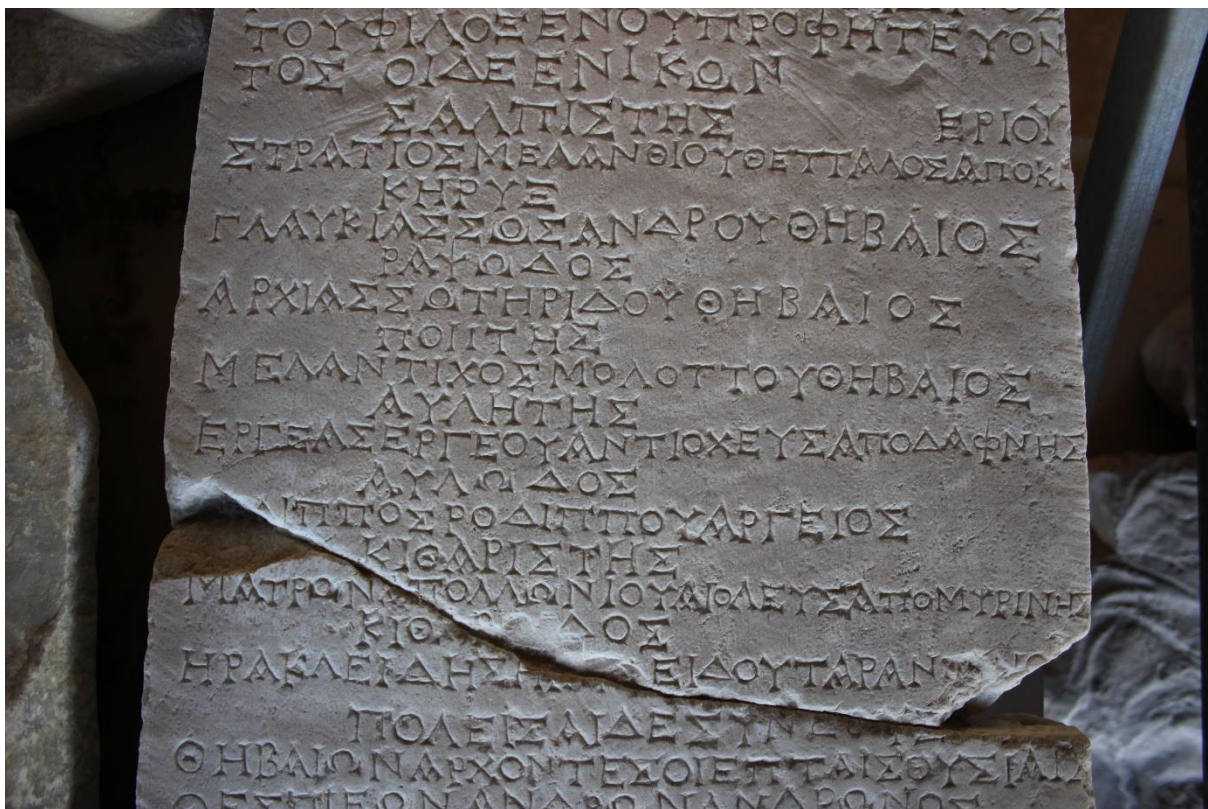 ΤΟΥΦΙΛΟΞΕΝΟΥΠΡΟΦΗΤΕΥΟΝ
ΤΟΣ ΟΙΔΕΕΝΙΚΩΝ
ΣΑΛΠΙΣΤΗΣ ΕΡΙΟΥ
ΣΤΡΑΤΙΟΣΜΕΛΑΝΘΙΟΥΘΕΤΤΑΛΟΣΑΠΟΚΙ
ΚΗΡΥΞ
ΓΛΑΥΚΙΑΣΣΩΣΑΝΔΡΟΥΘΗΒΑΙΟΣ
ΡΑΨΩΔΟΣ
ΑΡΧΙΑΣΣΩΤΗΡΙΔΟΥΘΗΒΑΙΟΣ
ΠΟΙΤΗΣ
ΜΕΛΑΝΤΙΧΟΣΜΟΛΟΤΤΟΥΘΗΒΑΙΟΣ
ΑΥΛΗΤΗΣ
ΕΡΓΕΑΣΕΡΓΕΟΥΑΝΤΙΟΧΕΥΣΑΠΟΔΑΦΝΗΣ
ΑΥΛΩΔΟΣ
ΙΠΠΟΣΡΟΔΙΠΠΟΥΑΡΓΕΙΟΣ
ΚΙΘΑΡΙΣΤΗΣ
ΜΑΤΡΩΝΑΠΟΛΛΩΝΙΟΥΑΙΟΛΕΥΣΑΠΟΜΥΡΙΝΗΣ
ΚΙΘ ΔΟΣ
ΗΡΑΚΛΕΙΔΗΣΗ ΕΙΔΟΥΤΑΡΑΝ
ΠΟΛΕΙΣΑΙΔΕΣΥΝ
ΘΗΒΑΙΩΝΑΡΧΟΝΤΕΣΟΙΕΠΤΑΙΣΘΥΣΙΑΙΣ
ΘΕΣΠΙΕΩΝΑΝΔΡΩΝΑΝΔΡΩΝΟΣ